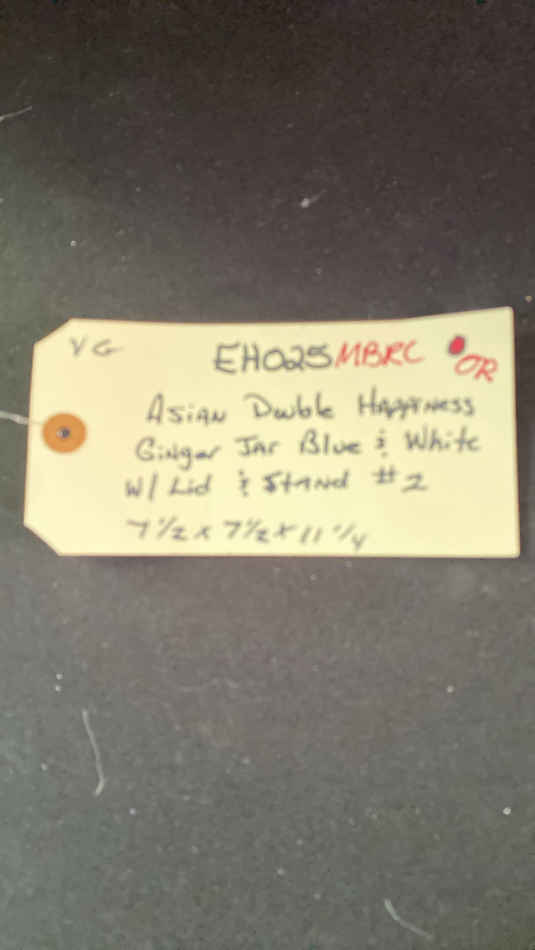 VG EH025MBRC OR
Asian Double Happiness
Ginger Jar Blue & White
W/ Lid & Stand #2
7 1/2 x 7 1/2 x 11 1/4